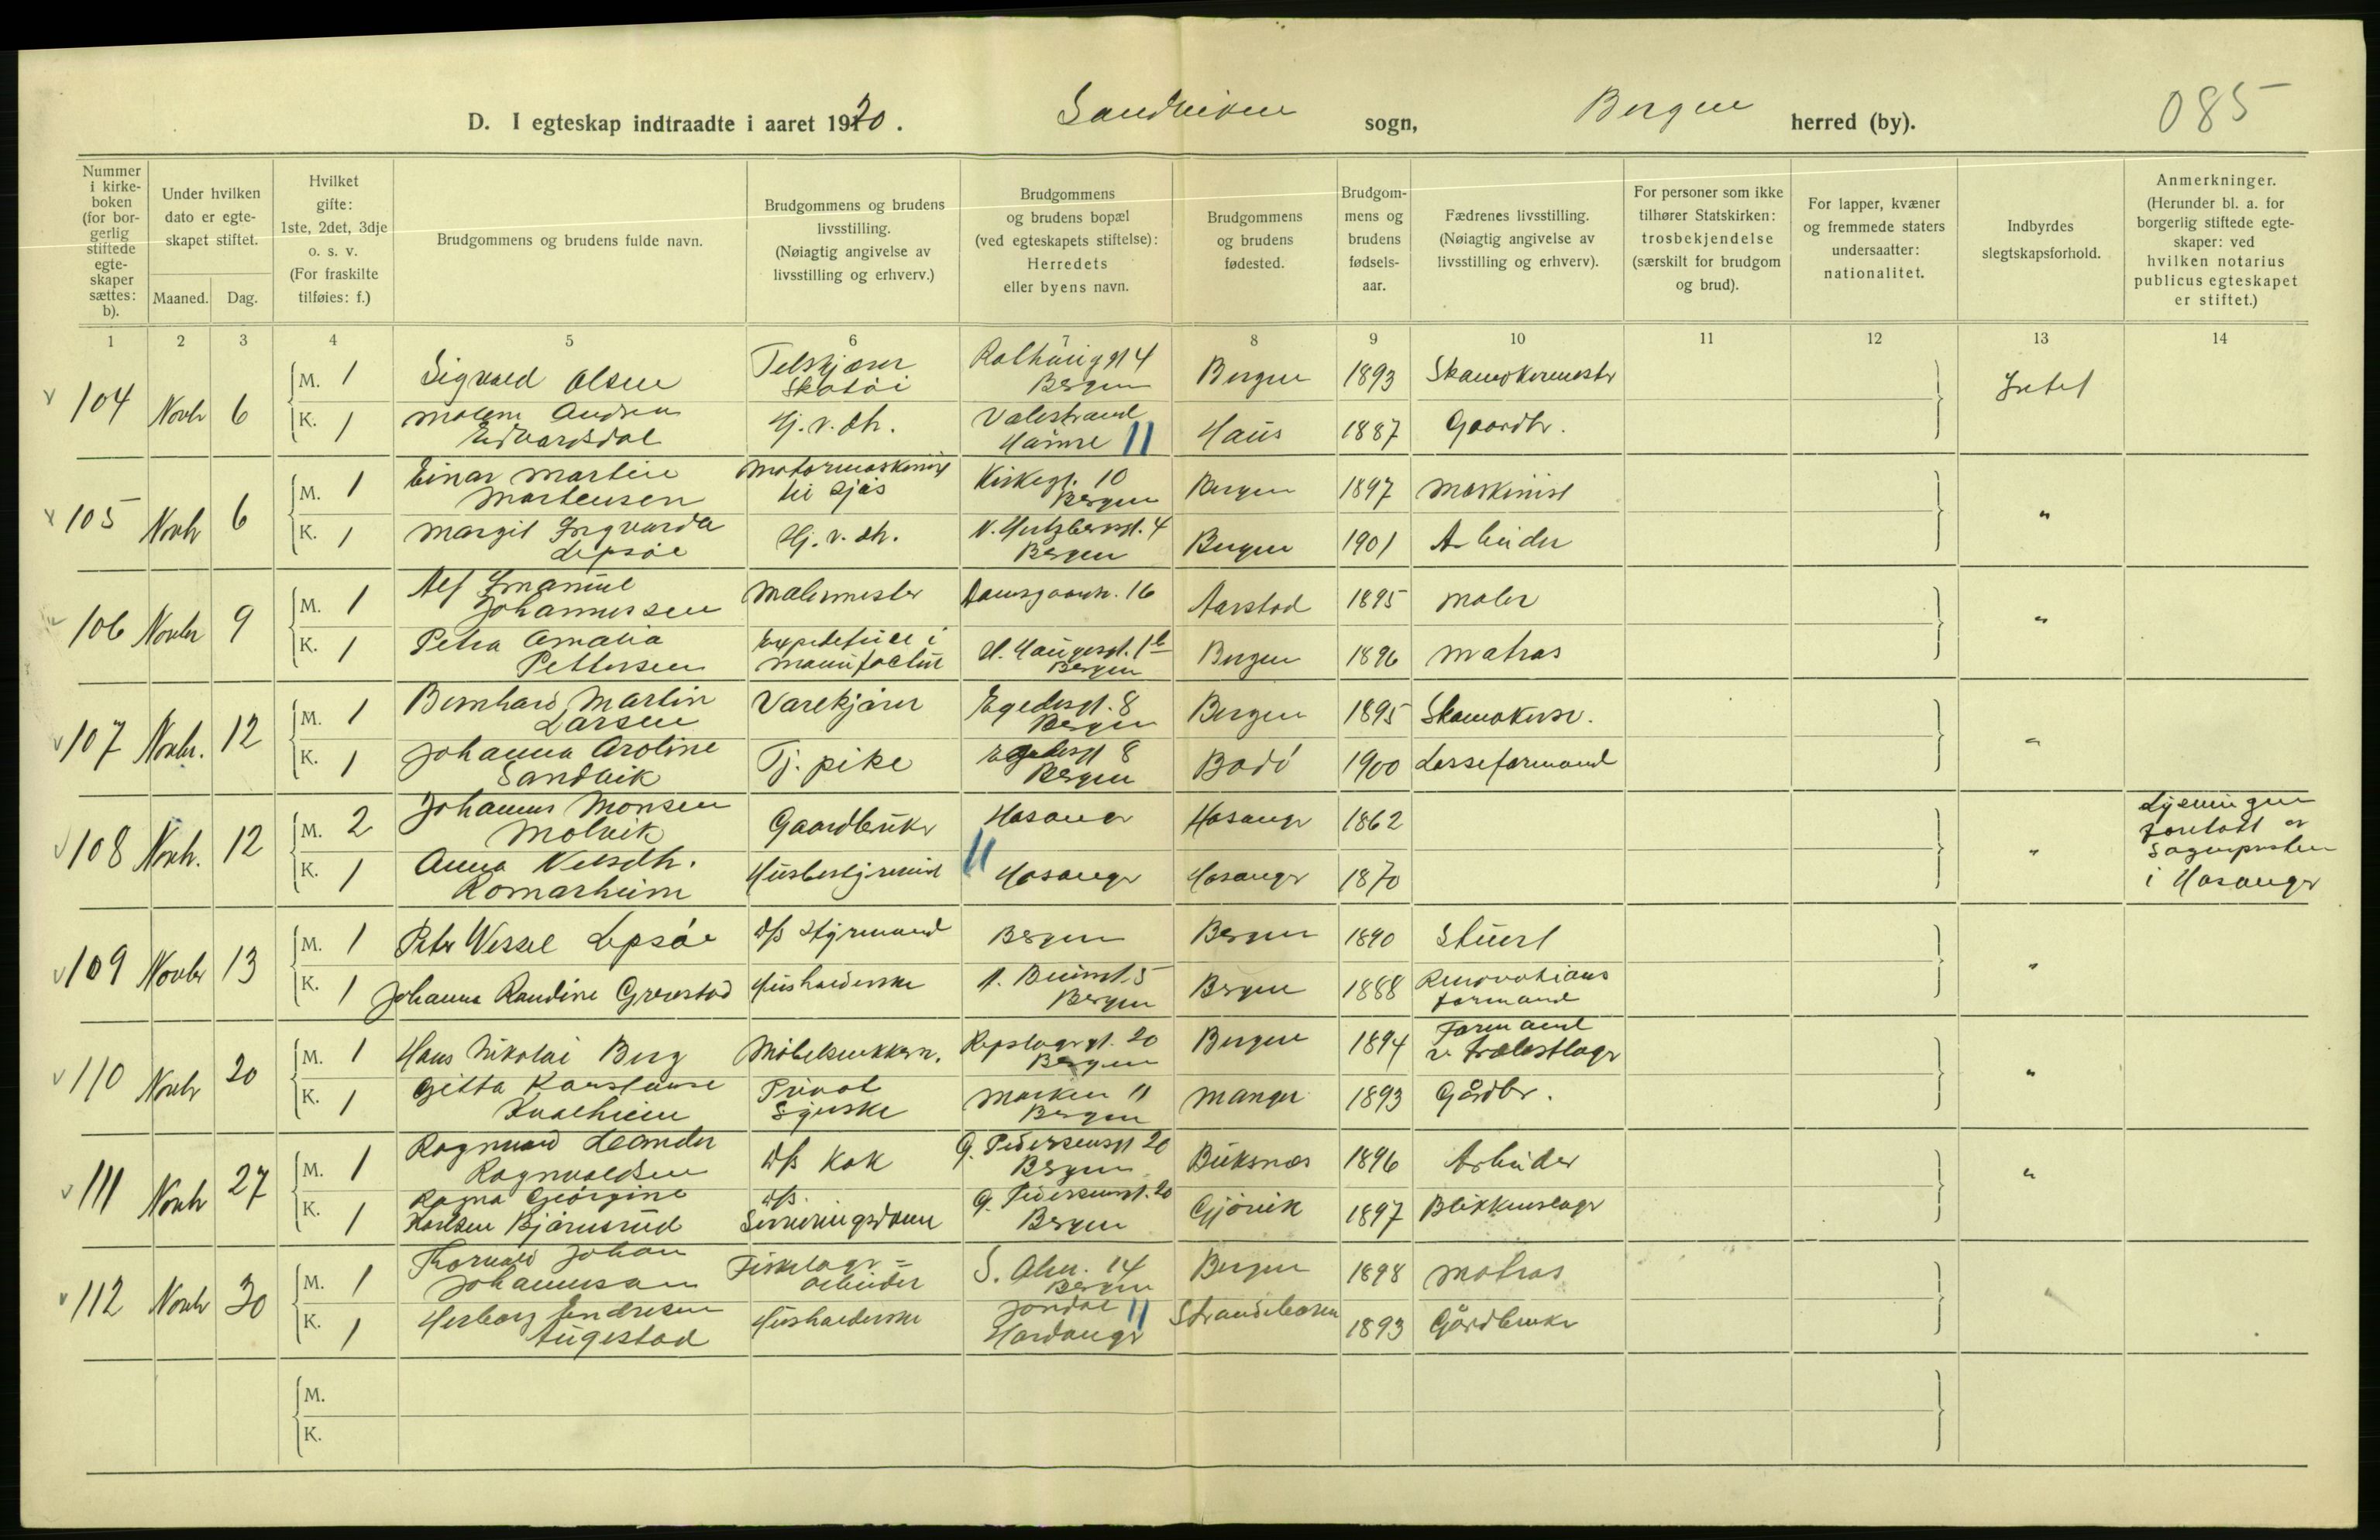 D. I egteskap indtraadte i aaret 1920. Sandviken sogn, Bergen herred (by). 085
Nummer i kirkeboken (for borgerlig stiftede egteskaper sættes: b).
Under hvilken dato er egteskapet stiftet.
Maaned. Dag.
Hvilket gifte: 1ste, 2det, 3dje o. s. v. (For fraskilte tilføies: f.)
Brudgommens og brudens fulde navn.
Brudgommens og brudens livsstilling. (Nøiagtig angivelse av livsstilling og erhverv.)
Brudgommens og brudens bopæl (ved egteskapets stiftelse): Herredets eller byens navn.
Brudgommens og brudens fødested.
Brudgommens og brudens fødselsaar.
Fædrenes livsstilling. (Nøiagtig angivelse av livsstilling og erhverv).
For personer som ikke tilhører Statskirken: trosbekjendelse (særskilt for brudgom og brud).
For lapper, kvæner og fremmede staters undersaatter: nationalitet.
Indbyrdes slegtskapsforhold.
Anmerkninger. (Herunder bl. a. for borgerlig stiftede egteskaper: ved hvilken notarius publicus egteskapet er stiftet.)
1 2 3 4 5 6 7 8 9 10 11 12 13 14
104 Novbr 6 M. 1 Sigvald Olsen Tilskjærer Skotöi Bergen Bergen 1893 Skomakermester Intet
K. 1 Malene Andrea Edvardsdal Hj. v. dh. Valestrand Hamre 11 Haus 1887 Gaardbr.
105 Novbr 6 M. 1 Einar Martin Martensen Motormaskinist til sjös Kirkegt. 10 Bergen Bergen 1897 Maskinist "
K. 1 Margit Ingvarda Lepsøe Hj. v. dh. N. Hertzbergsgt. 4 Bergen Bergen 1901 Arbeider
106 Novbr 9 M. 1 Alf Imanuel Johannessen Malermester Damsgaardv. 16 Aarstad 1895 Maler "
K. 1 Petra Amalia Pettersen Expeditrice i manufactur H. Haugesgt. 1b Bergen Bergen 1896 Matros
107 Novbr. 12 M. 1 Bernhard Martin Larsen Varekjører Egedesgt. 8 Bergen Bergen 1895 Skomakersv. "
K. 1 Johanna Aroline Sandvik Tj. pike Egedesgt 8 Bergen Bodö 1900 Losseformand
108 Novb. 12 M. 2 Johannes Monsen Molvik Gaardbruker Hosanger Hosanger 1862 " Lysningen foretatt av Sogneprsten i Hosanger
K. 1 Anna Nilsdtr. Romarheim Husbestyrerinde 11 Hosanger Hosanger 1870
109 Novbr 13 M. 1 Peter Wessel Lepsøe D/s styrmand Bergen Bergen 1890 Stuert "
K. 1 Johanna Randine Grevstad Husholderske Bergen Bergen 1888 Renovations formand
110 Novbr 20 M. 1 Hans Nikolai Berg Möbelsnekkersv. Repslagergt. 20 Bergen Bergen 1894 Formand v. trælastlager "
K. 1 Gitta Karstense Kvalheim Privat Syerske Marken 11 Bergen Manger 1893 Gårdbr.
111 Novbr 27 M. 1 Ragnvald Leander Ragnvaldsen D/s Kok G. Pedersensgt 20 Bergen Buksnes 1896 Arbeider "
K. 1 Ragna Georgine Karlsen Bjørnsrud D/s Serveringsdame G. Pedersensgt. 20 Bergen Gjövik 1897 Blikkenslager
112 Novbr 30 M. 1 Thorvald Johan Johannesen Fiskelager= arbeider S. Alm. 14 Bergen Bergen 1898 Matros "
K. 1 Herborg Endresen Augestad Husholderske Jondal 11 Hardanger Strandebarm 1893 Gårdbruker
M.
K.